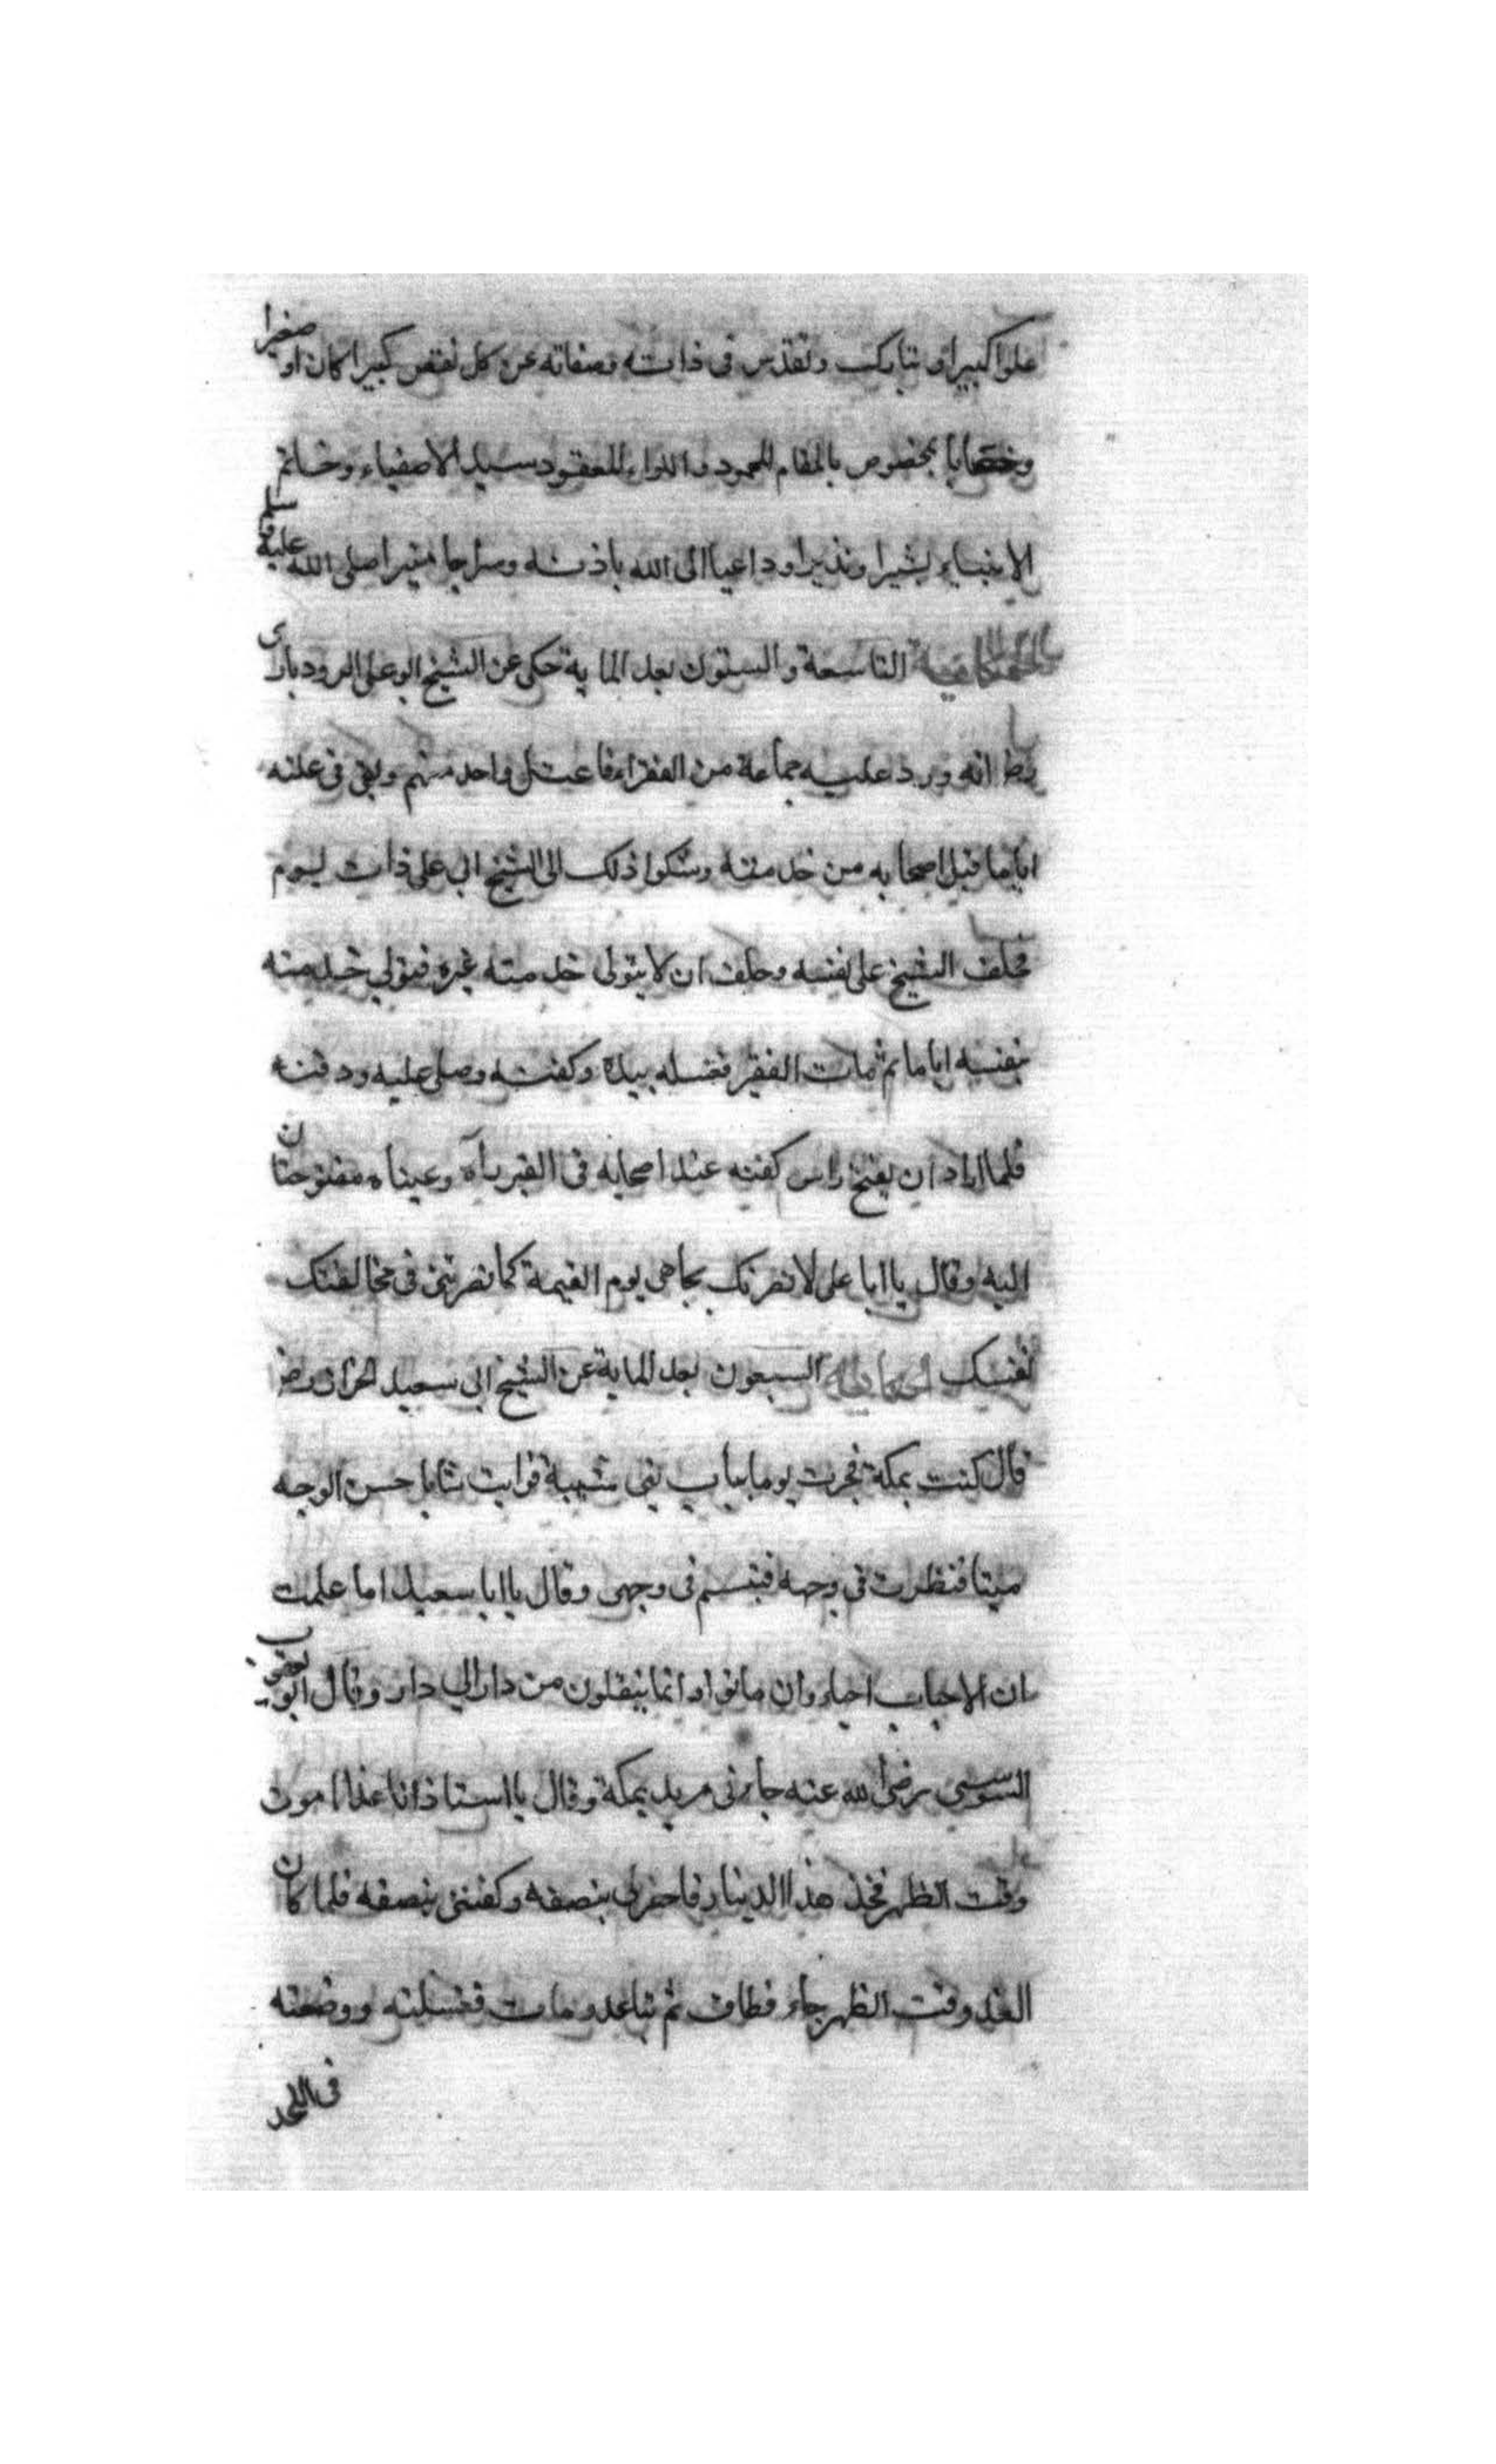 علوا كبيرا و تبارك وتقدس فى ذاته وصفاته عن كل نقص كبيرا كان او صغيرا
بالمقام المحمود واللواء المعقود سيد الاصفياء وخاتم
الانبياء بشيرا ونذيرا وداعيا الى الله باذنه وسراجا منيرا صلى الله عليه وسلم
الحكاية التاسعة والستون بعد الماية حكى عن الشيخ ابو على الرودبارى
رضـ انه ورد عليه جماعة من الفقراء فاعتل واحد منهم وبقى فى علته
اياما فمل اصحابه من خدمته وشكوا ذلك الى الشيخ ابى على ذات يوم
فخالف الشيخ على نفسه وحلف ان لا يتولى خدمته غيره فتولى خدمته
بنفسه اياما ثم مات الفقير فغسله بيده وكفنه وصلى عليه ودفنه
فلما اراد ان يفتح راس كفنه عند اصحابه فى القبر رآه وعيناه مفتوحتان
اليه وقال يا ابا على لانصرنك بجاهى يوم القيمة كما نصرتنى فى مخالفتك
نفسك الحكاية السبعون بعد الماية عن الشيخ ابى سعيد الخراز رضـ
قال كنت بمكة فجزت يوما بباب بنى شيبة فرايت شابا حسن الوجه
ميتا فنظرت فى وجهه فتبسم فى وجهى وقال يا ابا سعيد اما علمت
ان الاحباب احياء وان ماتوا وانما ينقلون من دار الى دار وقال ابو يعقوب
السوسى رضى الله عنه جاءنى مريد بمكة وقال يا استاذ انا غدا اموت
وقت الظهر فخذ هذا الدينار فاحفر لى بنصفه وكفننى بنصفه فلما كان
الغد وقت الظهر جاء فطاف ثم تباعد ومات فغسلته ووضعته
فى اللحد